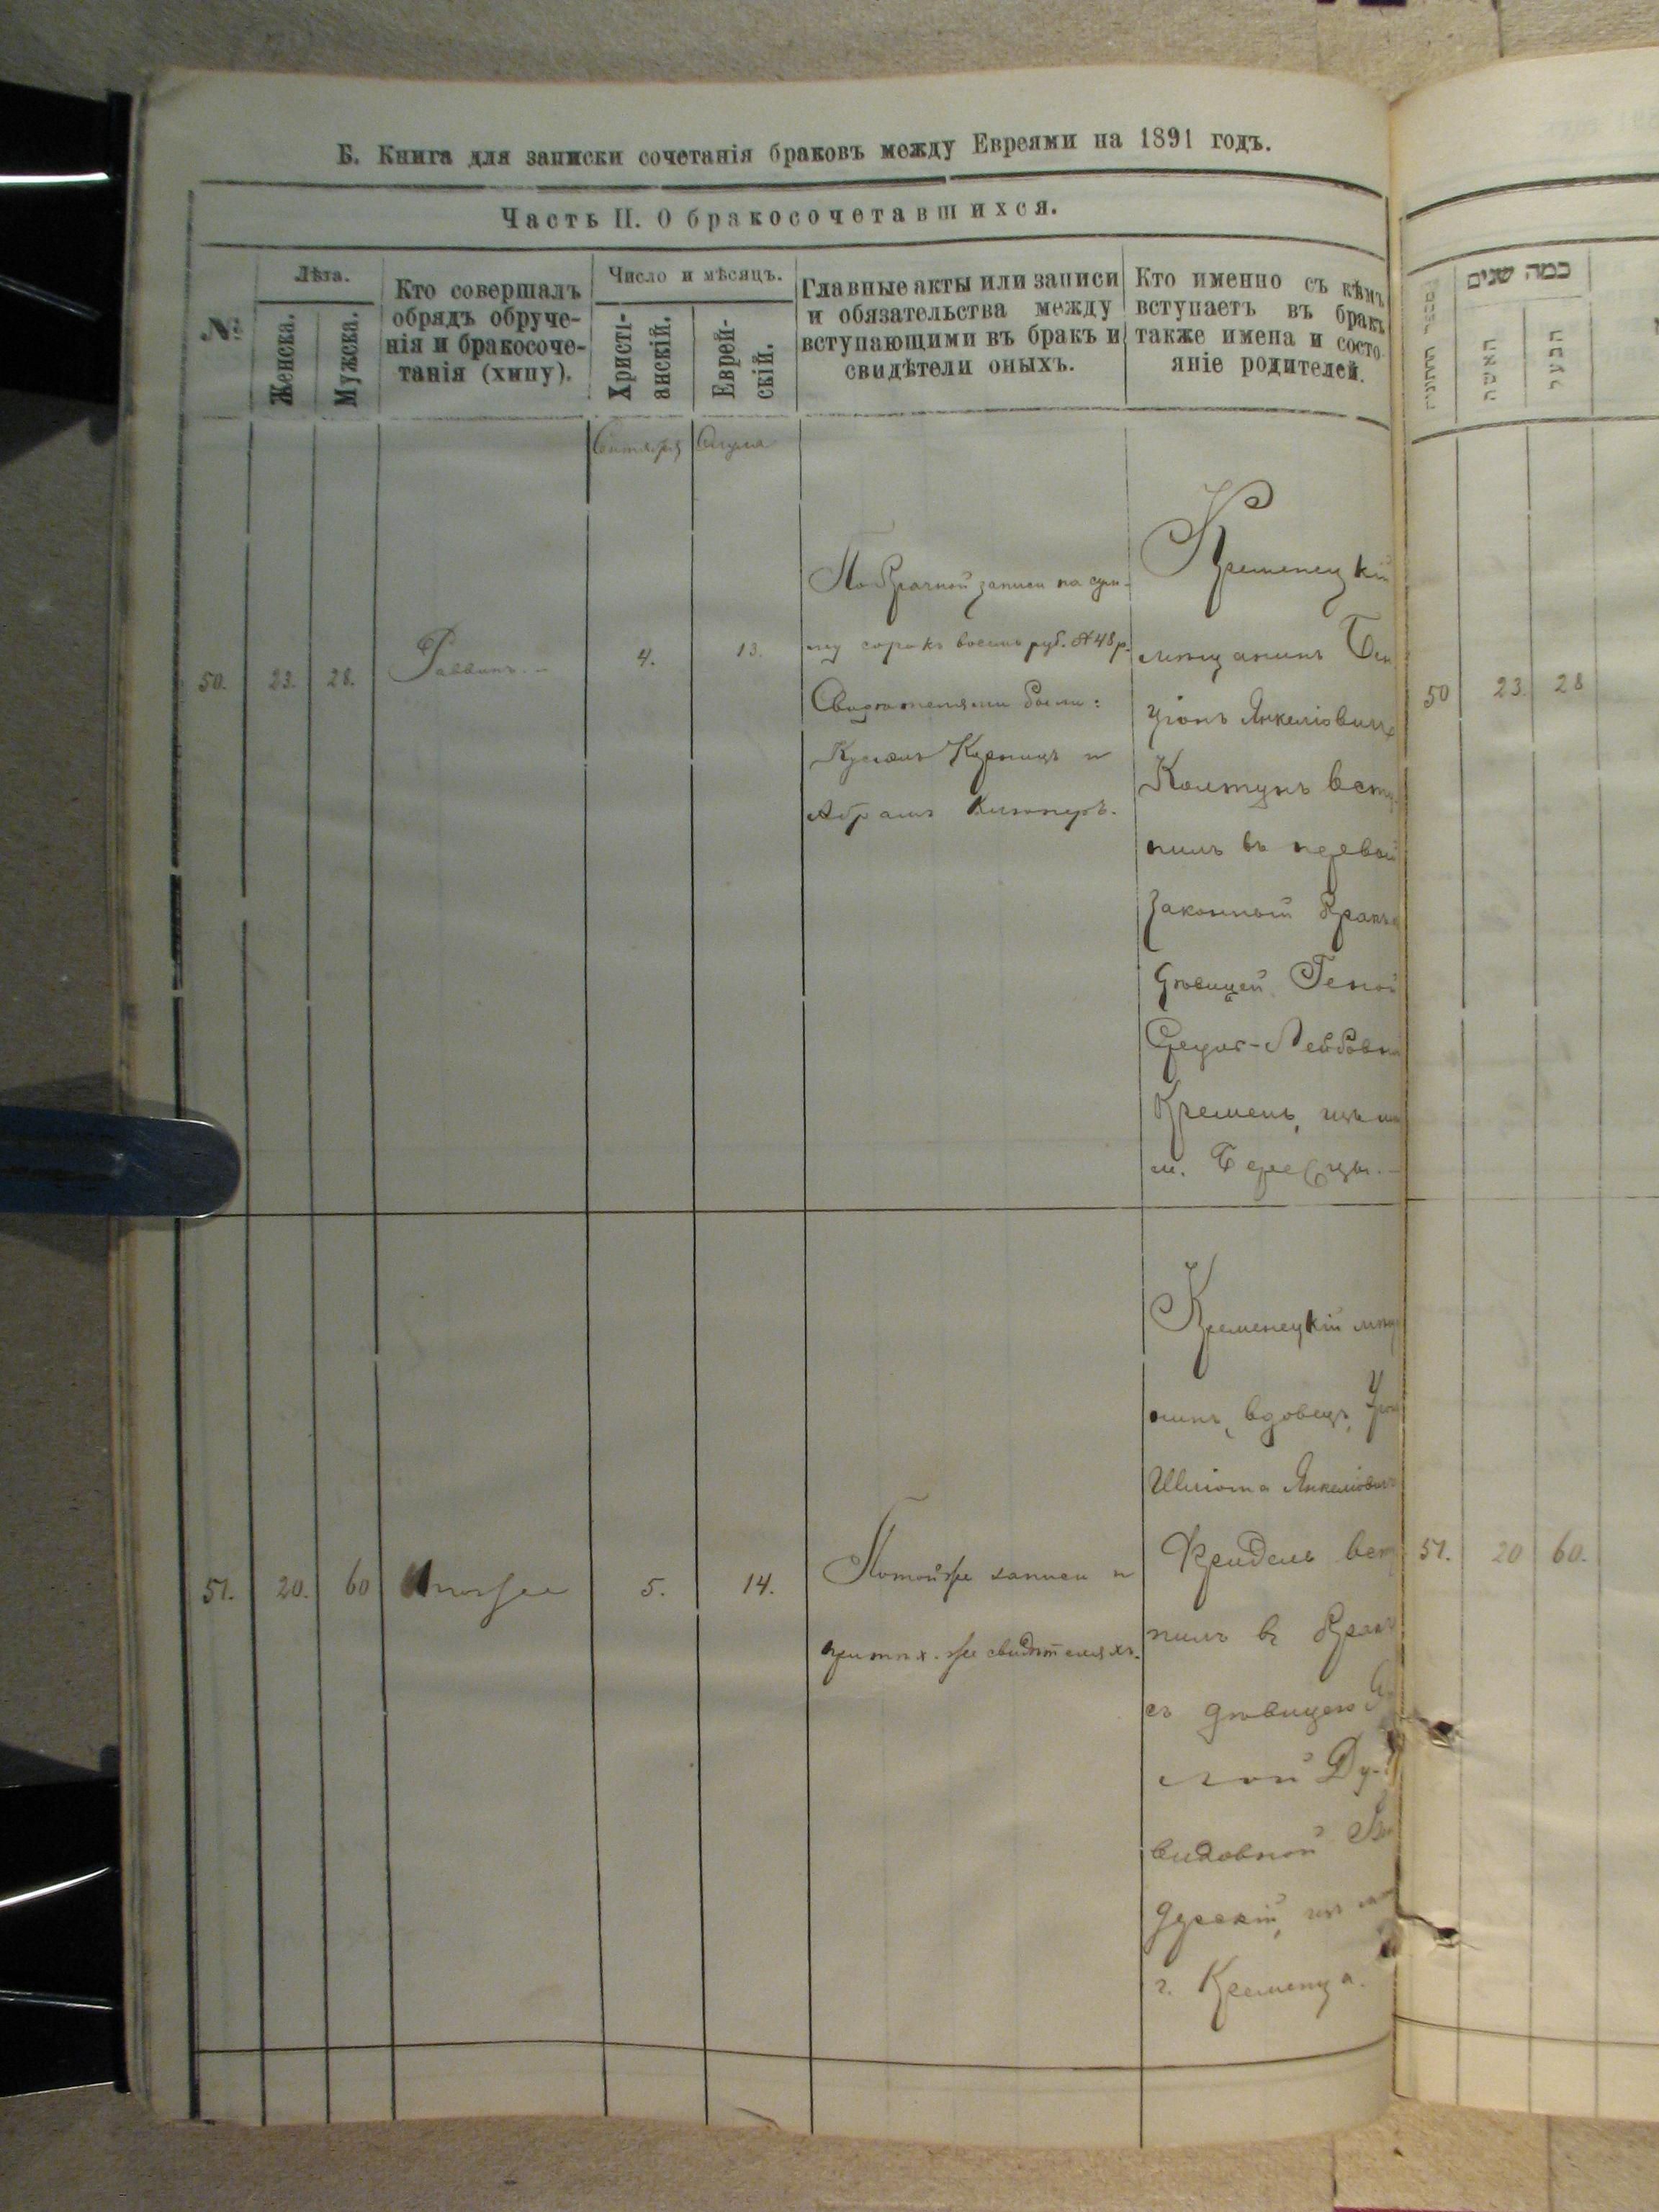 Б. Книга для записки сочетанія браковъ между Евреями на 1891 годъ.
Часть II. О бракосочетавшихся.
№
Лѣта.
Женска.
Мужска.
Кто совершалъ
обрядъ обруче-
нія и бракосоче-
танія (хипу).
Число и мѣсяцъ.
Христі-
анскій.
Еврей-
скій.
Главные акты или записи
и обязательства между
вступающими въ бракъ и
свидѣтели оныхъ.
Кто именно съ кѣмъ
вступаетъ въ бракъ
также имена и состо-
яніе родителей.
כמה שנים
האשה
הבעל
Сентября
Элула
50.
23.
28.
Раввинъ.
4.
13.
По брачной записи на сум-
му сорокъ восемь руб. 48 р.
Свидѣтелями были:
и
Абрамъ
Кременецкій
мѣщанинъ Бен
ціонъ Янкеліовичъ
Колтунъ всту
пилъ въ первый
законный бракъ
дѣвицей
Лейбовн
Кремень, изъ
м. Бережцы.
50
23.
28
51.
20.
60
Тотъ же
5.
14.
По той же записи и
при тѣхъ же свидѣтеляхъ.
Кременецкій мѣщ
нинъ, вдовецъ,
Шліома Янкеліович
Фридель вст
пилъ въ бракъ
съ дѣвицею
лой Ду-
видовной
г. Кременца.
51.
20
60.